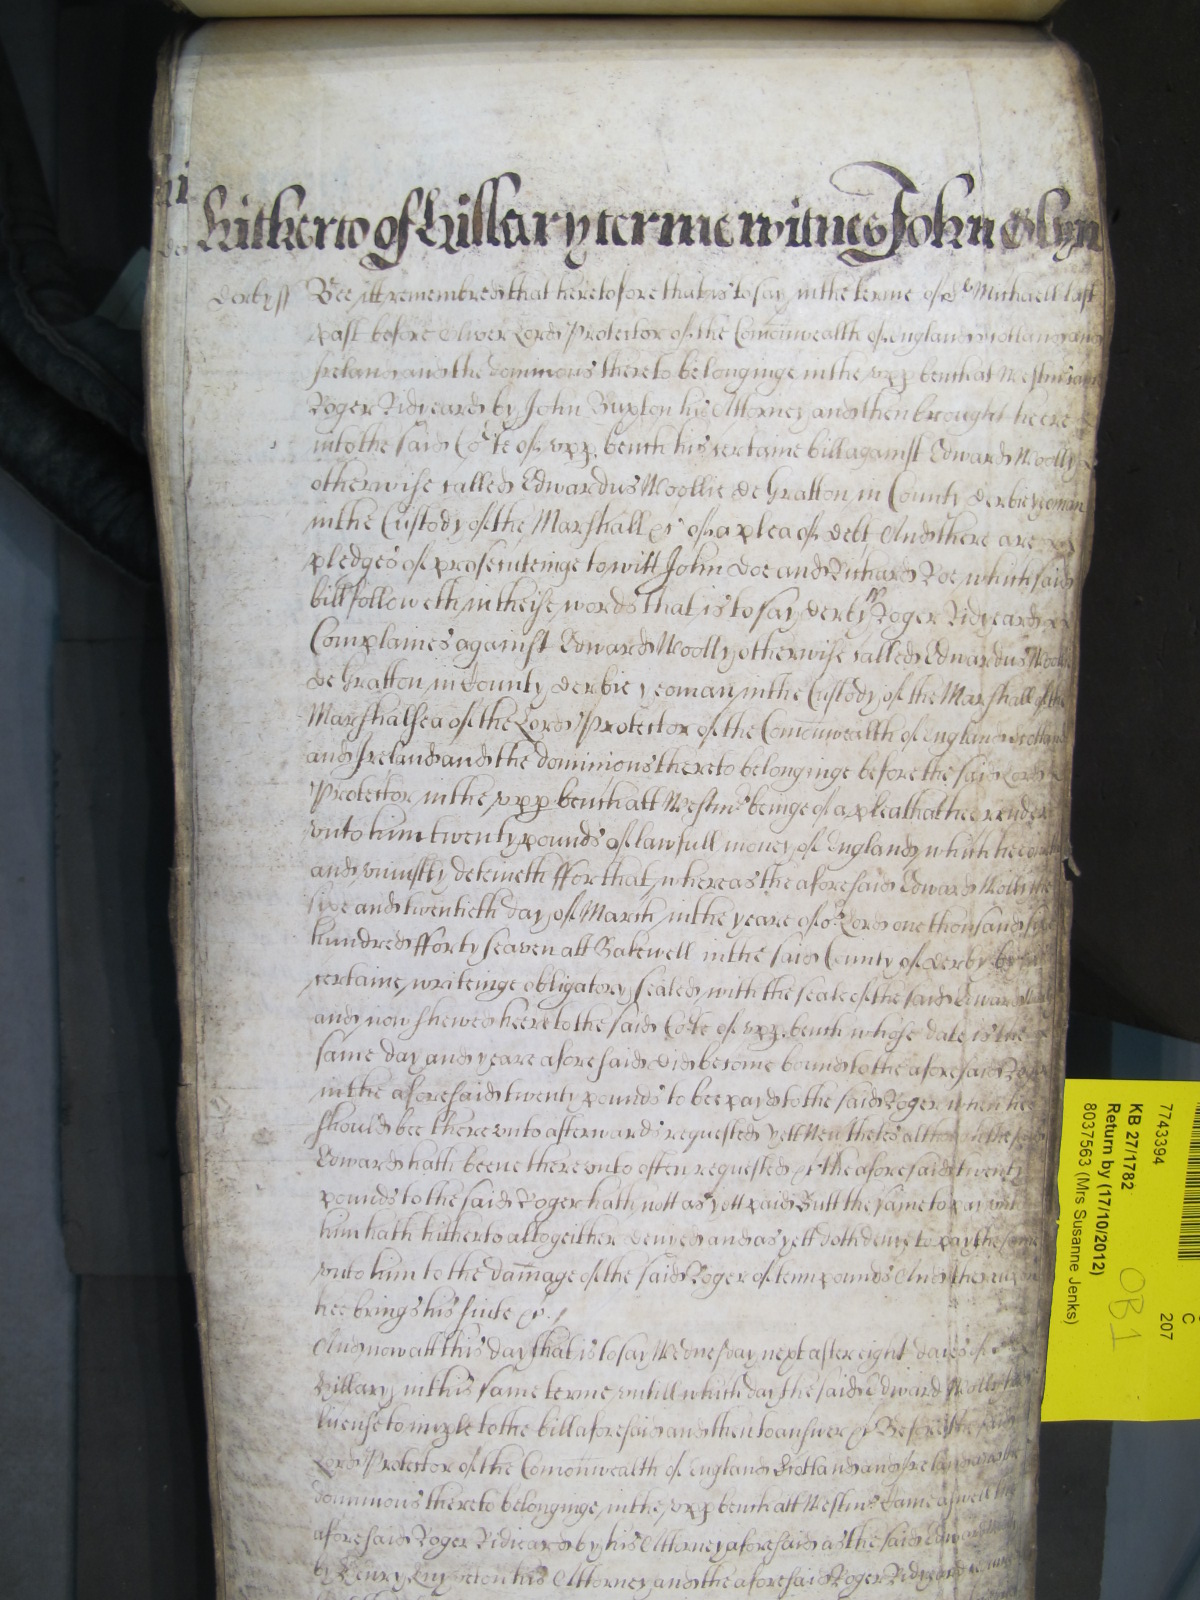 Hitherto of Hillary terme witnes John Glyn
Derby ss Bee itt remembred that heretofore that is to say in the terme of St Michaell last
past before Oliver Lord Protector of the Comonwealth of England Scotland and
Ireland and the dominions thereto belonginge in the upp bench at Westminster
Roger Ridyeard by John Buxton his Attorney and then brought heere
into the said Co:te of upp. bench his certaine bill against Edward Woolly
otherwise called Edwardus Woollie de Gratton in County Derbie yeoman
in the Custody of the Marshall &c of a plea of debt And there are
pledges of prosecuteinge to witt John Doe and Richard Roe which said
bill followeth in theise words that is to say Derby ss Roger Ridyeard
Complaines against Edward Woolly otherwise called Edwardus Woollie
de Gratton in County Derbie yeoman in the Custody of the Marshall of the
Marshalsea of the Lord Protector of the Comonwealth of England Scotland
and Ireland and the dominions thereto belonginge before the said Lord
Protector in the upp bench att Westmr beinge of a plea that hee render
unto him twenty pounds of lawfull money of England which hee oweth
and uniustly deteineth ffor that whereas the aforesaid Edward Woolly the
five and twentieth day of March in the yeare of or Lord one thousand six
hundred fforty seaven att Bakewell in the said County of Derby by his
certaine writeinge obligatory sealed with the seale of the said Edward
and now shewed heere to the said Co:te of upp. bench whose date is the
same day and yeare aforesaid did become bound to the aforesaid Roger
in the aforesaid twenty pounds to bee payd to the said Roger when hee
should bee thereunto afterwards requested yett Nevtheles although the said
Edward hath beene thereunto often requested &c the aforesaid twenty
pounds to the said Roger hath nott as yett paid Butt the same to pay unto
him hath hitherto altogeither denyed and as yett doth denie to pay the same
unto him to the damage of the said Roger of tenn pounds And thereupon
hee brings his suite &c.
And now att this day that is to say Wednesday next after eight daies of St
Hillary in this same terme untill which day the said Edward Woolly had
lycense to imple to the bill aforesaid and then to answer &c Before the said
Lord Protector of the Comonwealth of England Scotland and Ireland and the
dominions thereto belonginge in the upp bench att Westmr Came aswell the
aforesaid Roger Ridieard by his Attorney aforesaid as the said Edward
by Henry his Attorney and the aforesaid Roger Ridyeard
7743394
C
207
KB 27/1782
Return by (17/10/2012)
8037563 (Mrs Susanne Jenks)
OB 1